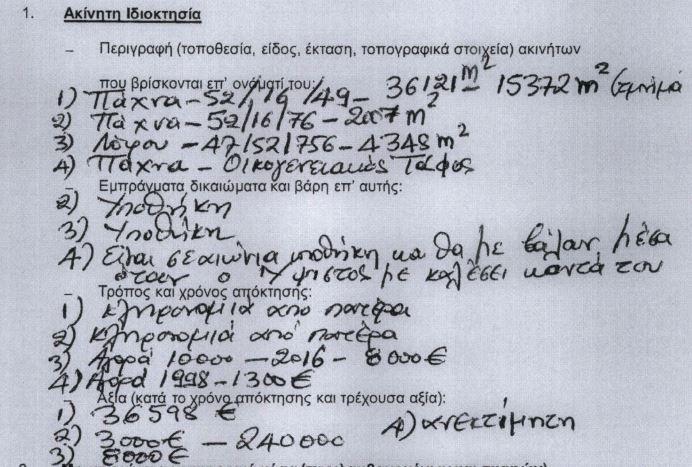 1. Ακίνητη Ιδιοκτησία
– Περιγραφή (τοποθεσία, είδος, έκταση, τοπογραφικά στοιχεία) ακινήτων
που βρίσκονται επ' ονόματί του:
1) Πάχνα – 52/19/49 – 36121 m² – 15372 m² (τμήμα
2) Πάχνα – 52/16/76 – 2007 m²
3) Λόφου – 47/52/756 – 4348 m²
4) Πάχνα – Οικογενειακός Τάφος
– Εμπράγματα δικαιώματα και βάρη επ' αυτής:
2) Υποθήκη
3) Υποθήκη
4) Είναι σε αιώνια υποθήκη και θα με βάλαν μέσα
όταν ο Ύψιστος με καλέσει κοντά του
– Τρόπος και χρόνος απόκτησης:
1) κληρονομιά από πατέρα
2) κληρονομιά από πατέρα
3) Αγορά 10000 – 2016 – 8000€
4) Αγορά 1998 – 1300€
– Αξία (κατά το χρόνο απόκτησης και τρέχουσα αξία):
1) 36598 €
4) ανεκτίμητη
2) 3000€ – 240000
3) 8000€